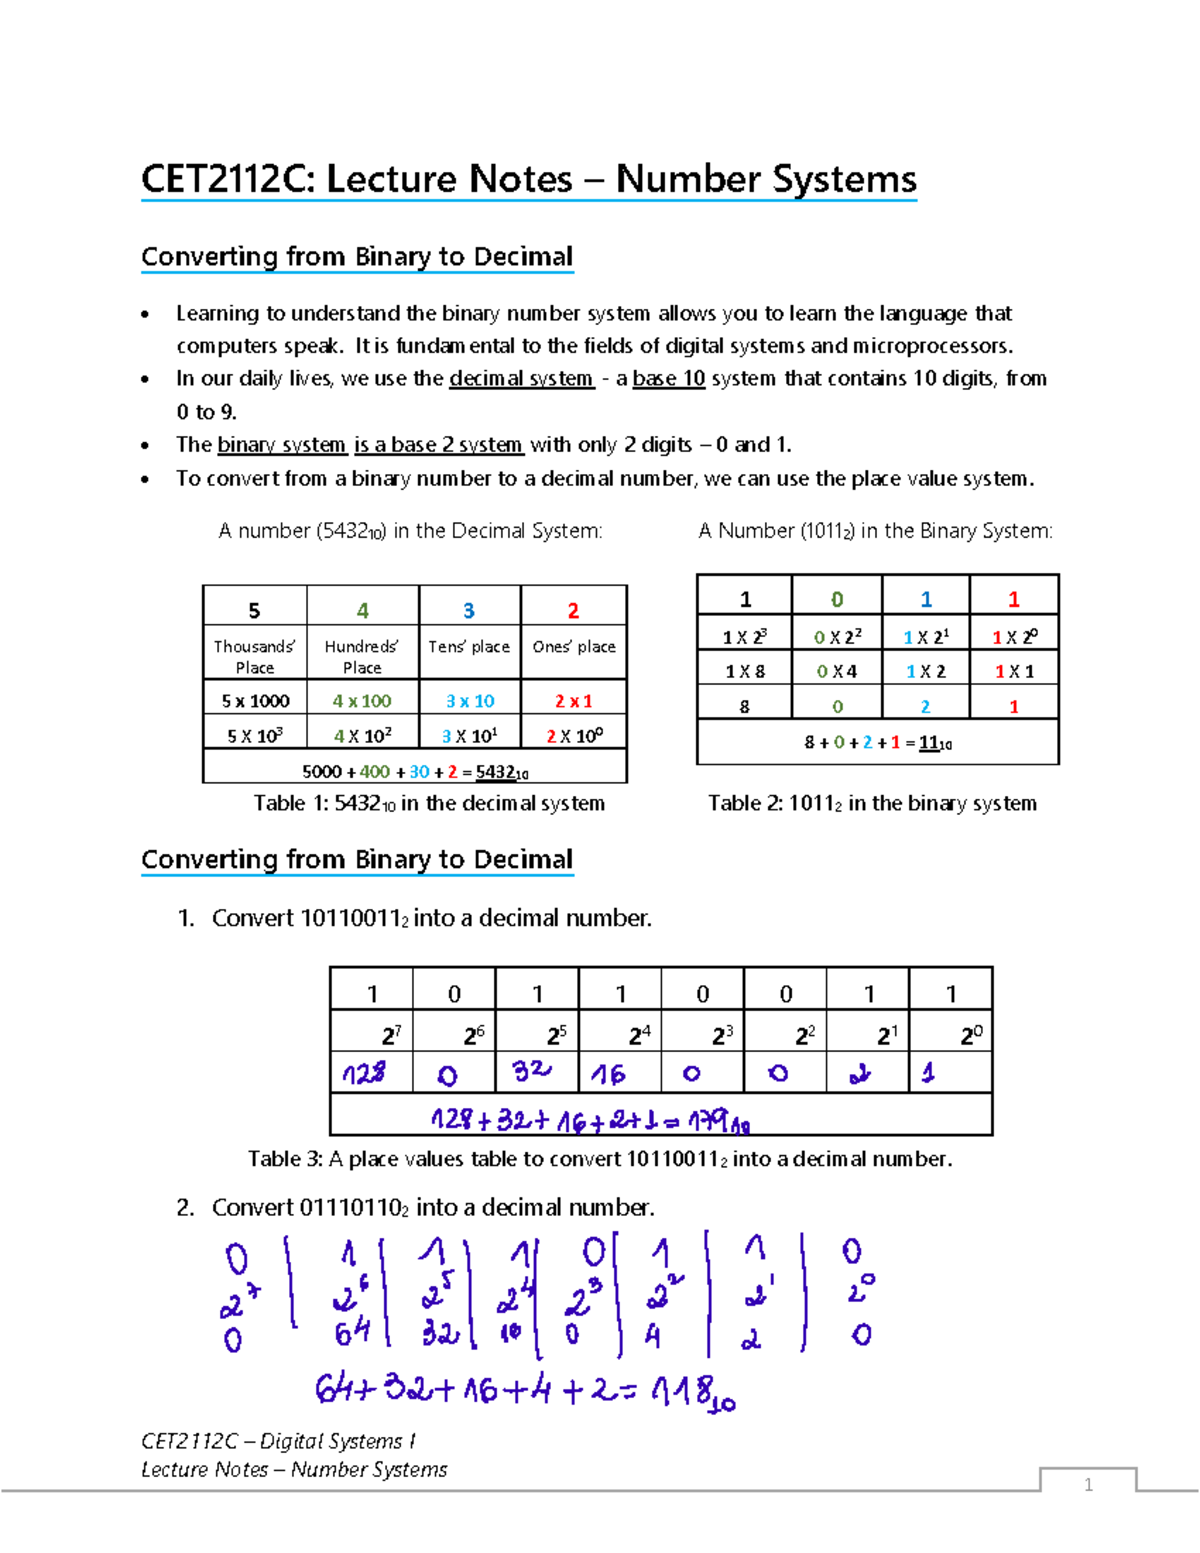 CET2112C: Lecture Notes – Number Systems
Converting from Binary to Decimal
• Learning to understand the binary number system allows you to learn the language that
computers speak. It is fundamental to the fields of digital systems and microprocessors.
• In our daily lives, we use the decimal system - a base 10 system that contains 10 digits, from
0 to 9.
• The binary system is a base 2 system with only 2 digits – 0 and 1.
• To convert from a binary number to a decimal number, we can use the place value system.
A number (5432₁₀) in the Decimal System:
5 4 3 2
Thousands' Place Hundreds' Place Tens' place Ones' place
5 x 1000 4 x 100 3 x 10 2 x 1
5 X 10³ 4 X 10² 3 X 10¹ 2 X 10⁰
5000 + 400 + 30 + 2 = 5432₁₀
Table 1: 5432₁₀ in the decimal system
A Number (1011₂) in the Binary System:
1 0 1 1
1 X 2³ 0 X 2² 1 X 2¹ 1 X 2⁰
1 X 8 0 X 4 1 X 2 1 X 1
8 0 2 1
8 + 0 + 2 + 1 = 11₁₀
Table 2: 1011₂ in the binary system
Converting from Binary to Decimal
1. Convert 10110011₂ into a decimal number.
1 0 1 1 0 0 1 1
2⁷ 2⁶ 2⁵ 2⁴ 2³ 2² 2¹ 2⁰
128 0 32 16 0 0 2 1
128 + 32 + 16 + 2 + 1 = 179₁₀
Table 3: A place values table to convert 10110011₂ into a decimal number.
2. Convert 01110110₂ into a decimal number.
0 1 1 1 0 1 1 0
2⁷ 2⁶ 2⁵ 2⁴ 2³ 2² 2¹ 2⁰
0 64 32 0 4 2 0
64 + 32 + 16 + 4 + 2 = 118₁₀
CET2112C – Digital Systems I
Lecture Notes – Number Systems
1